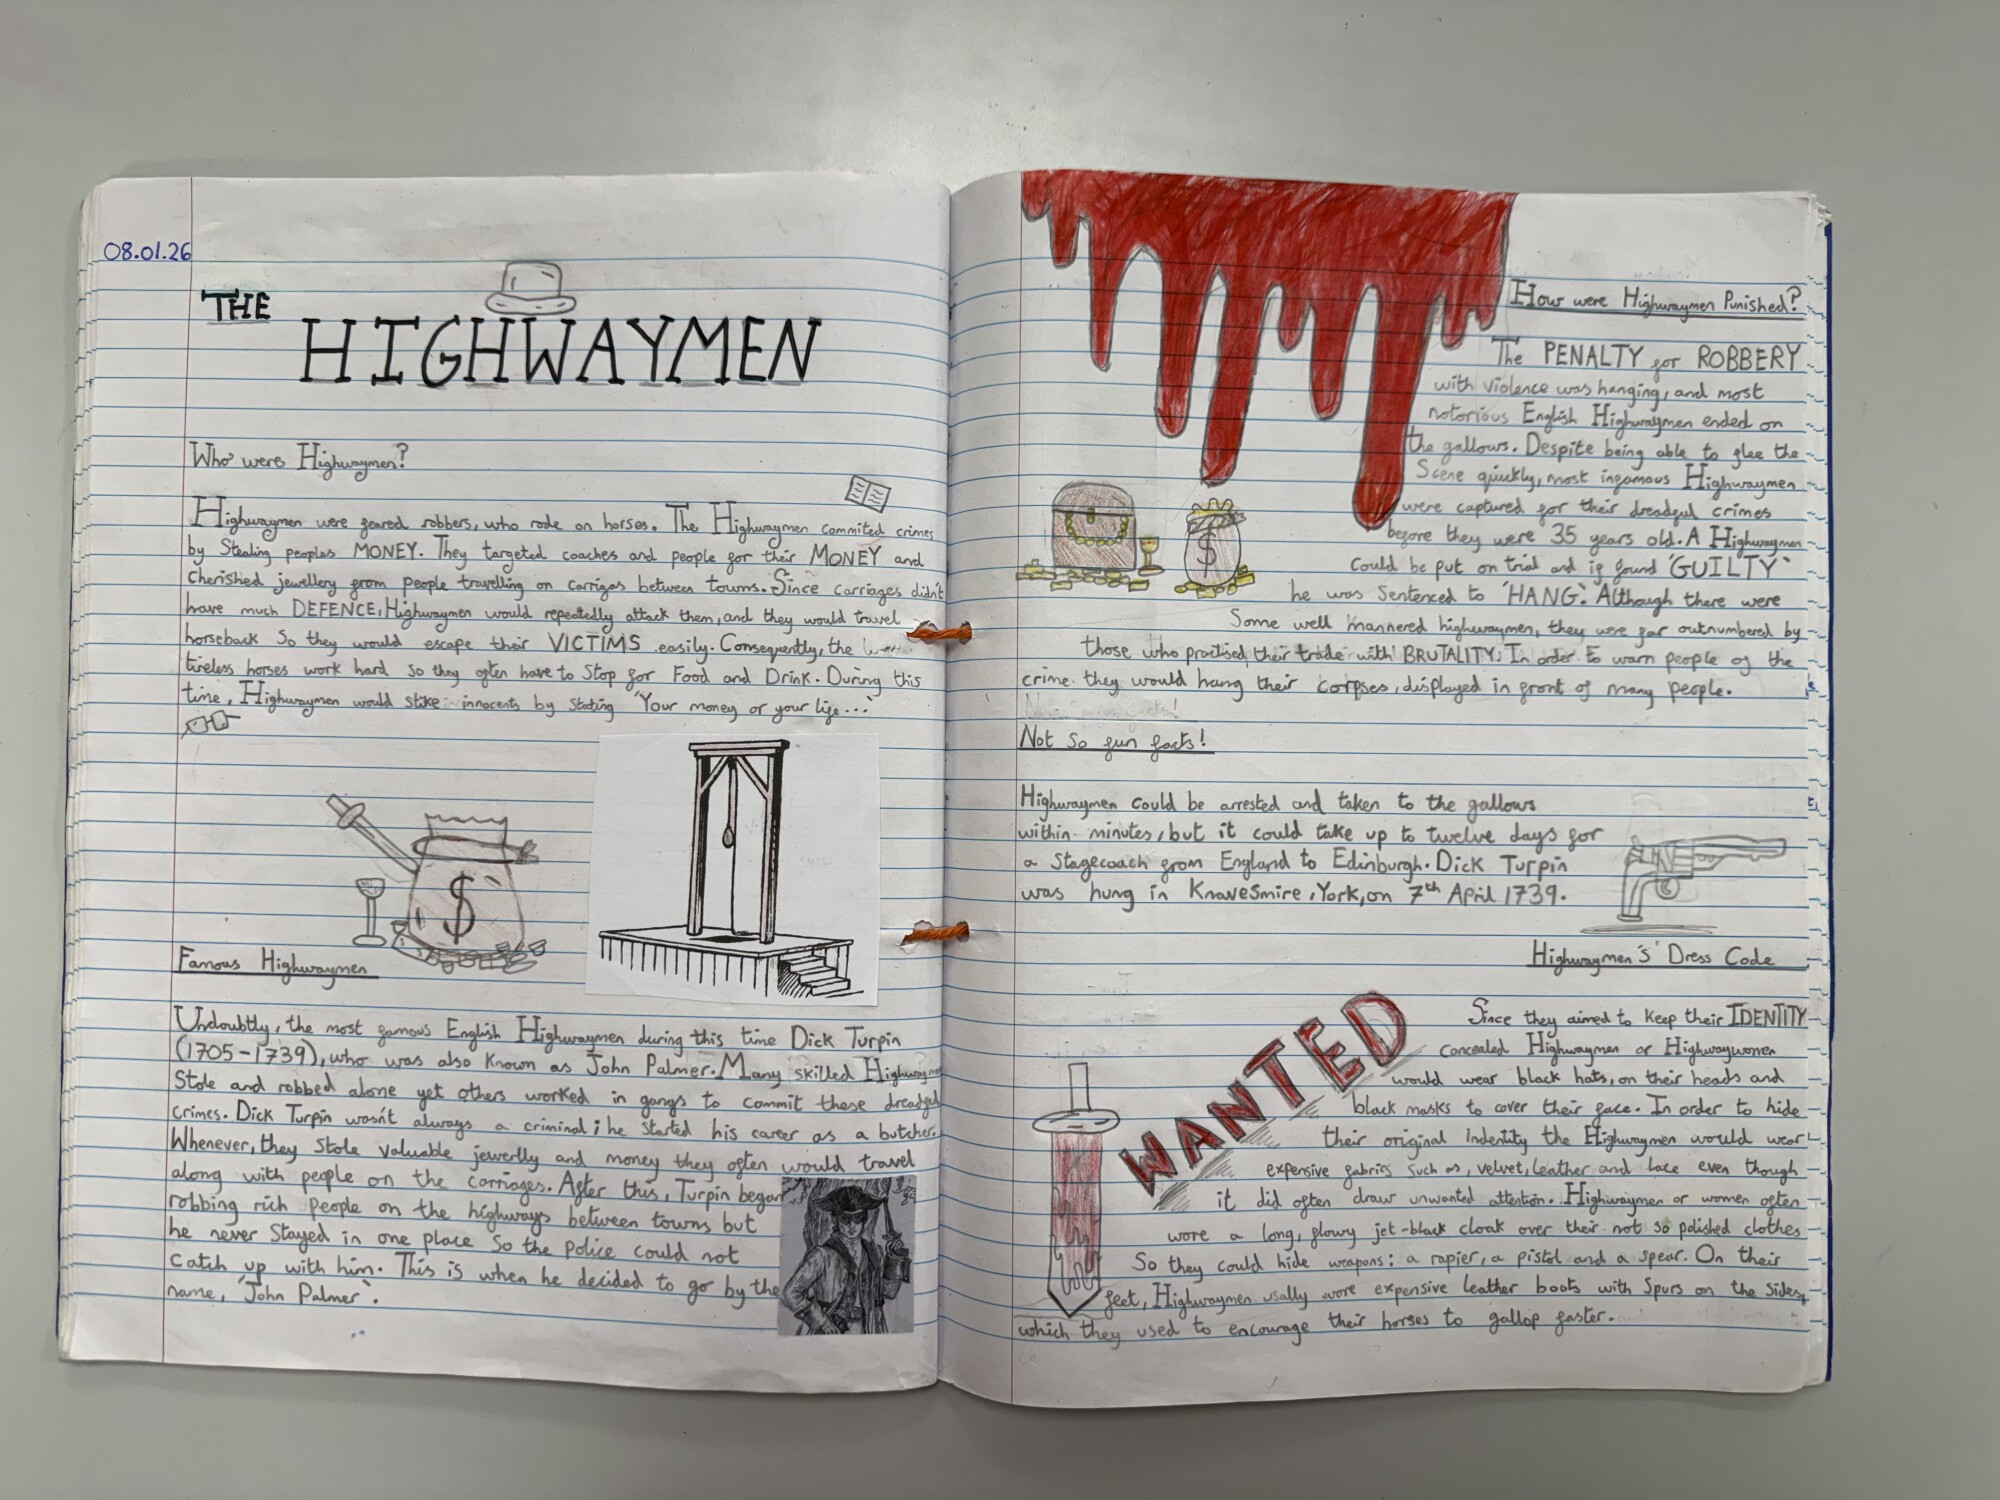 08.01.26
THE
HIGHWAYMEN
Who were Highwaymen?
Highwaymen were feared robbers, who rode on horses. The Highwaymen commited crimes
by Stealing peoples MONEY. They targeted coaches and people for their MONEY and
cherished jewellery from people travelling on carrigas between towns. Since carriages didn't
have much DEFENCE, Highwaymen would repeatedly attack them, and they would travel
horseback So they would escape their VICTIMS easily. Consequently, the
tireless horses work hard so they often have to Stop for Food and Drink. During this
time, Highwaymen would stike innocents by stating 'Your money or your life...'
$
Famous Highwaymen
Undoubtly, the most famous English Highwaymen during this time Dick Turpin
(1705-1739), who was also known as John Palmer. Many skilled Highwaymen
Stole and robbed alone yet others worked in gangs to commit these dreadful
crimes. Dick Turpin wasn't always a criminal; he started his career as a butcher.
Whenever, they stole valuable jewerlly and money they often would travel
along with people on the carriages. After this, Turpin began
robbing rich people on the highways between towns but
he never stayed in one place So the police could not
catch up with him. This is when he decided to go by the
name, 'John Palmer'.
How were Highwaymen Punished?
The PENALTY for ROBBERY
with violence was hanging, and most
notorious English Highwaymen ended on
the gallows. Despite being able to flee the
Scene quickly, most infamous Highwaymen
were captured for their dreadful crimes
before they were 35 years old. A Highwaymen
could be put on trial and if found 'GUILTY'
he was sentenced to 'HANG'. Although there were
Some well mannered highwaymen, they were far outnumbered by
those who practised their trade with BRUTALITY. In order to warn people of the
crime they would hang their corpses, displayed in front of many people.
$
Not so fun facts!
Highwaymen could be arrested and taken to the gallows
within minutes, but it could take up to twelve days for
a stagecoach from England to Edinburgh. Dick Turpin
was hung in Knavesmire, York, on 7th April 1739.
Highwaymen's' Dress Code
WANTED
Since they aimed to keep their IDENTITY
concealed Highwaymen or Highwaywomen
would wear black hats, on their heads and
black masks to cover their face. In order to hide
their original indentity the Highwaymen would wear
expensive fabrics such as, velvet, leather and lace even though
it did often draw unwanted attention. Highwaymen or women often
wore a long, flowy jet-black cloak over their not so polished clothes
So they could hide weapons: a rapier, a pistol and a spear. On their
feet, Highwaymen usally wore expensive leather boots with spurs on the sides,
which they used to encourage their horses to gallop faster.